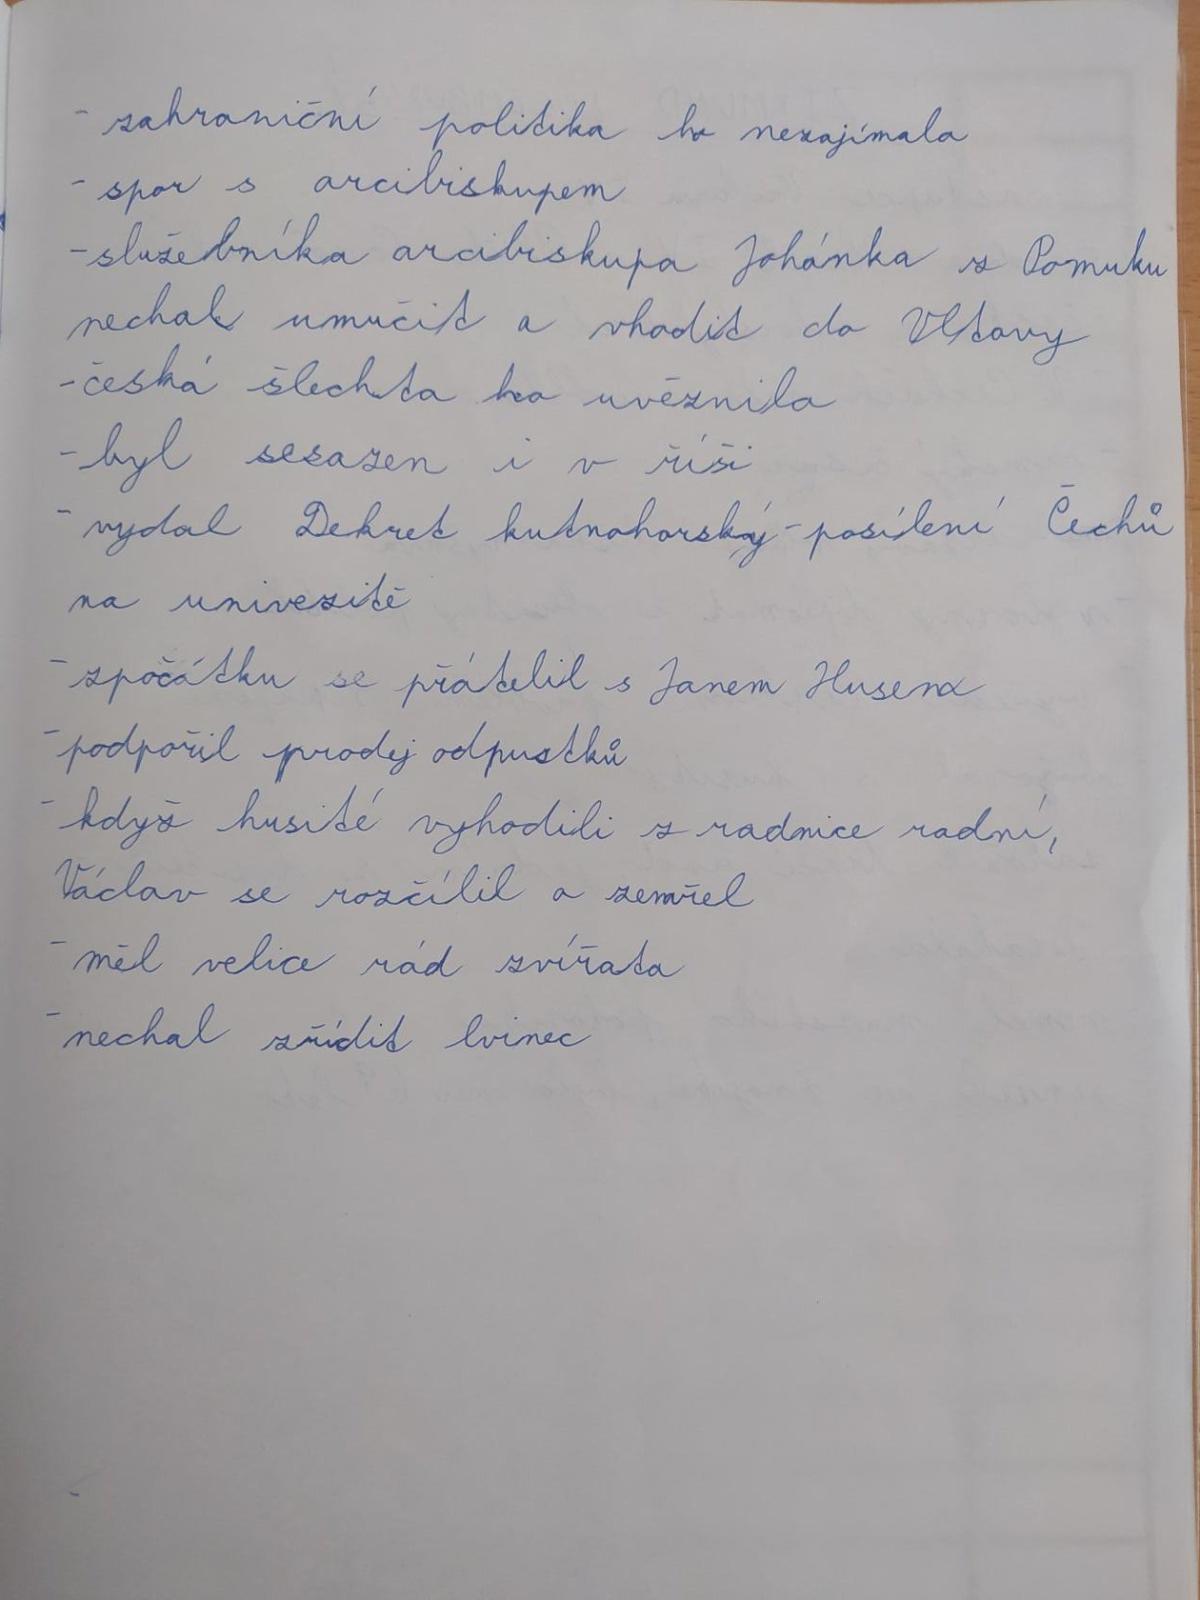 - zahraniční politika ho nezajímala
- spor s arcibiskupem
- služebníka arcibiskupa Johánka z Pomuku
nechal umučit a vhodit do Vltavy
- česká šlechta ho uvěznila
- byl sesazen i v říši
- vydal Dekret kutnohorský - posílení Čechů
na univezitě
- zpočátku se přátelil s Janem Husem
- podpořil prodej odpustků
- když husité vyhodili z radnice radní,
Václav se rozčílil a zemřel
- měl velice rád zvířata
- nechal zřídit lvinec